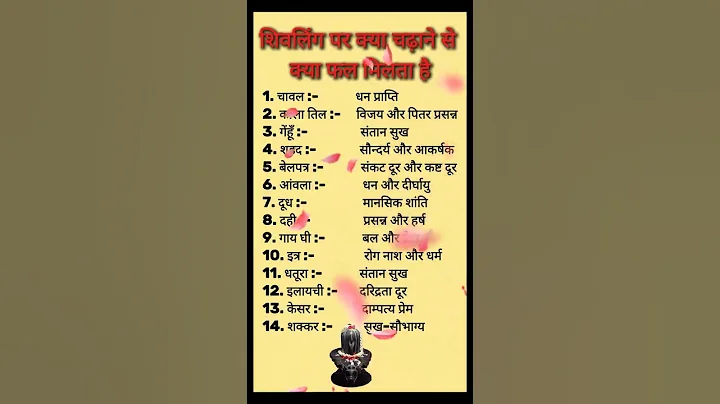 शिवलिंग पर क्या चढ़ाने से
क्या फल मिलता है
1. चावल :- धन प्राप्ति
2. काला तिल :- विजय और पितर प्रसन्न
3. गेंहूँ :- संतान सुख
4. शहद :- सौन्दर्य और आकर्षक
5. बेलपत्र :- संकट दूर और कष्ट दूर
6. आंवला :- धन और दीर्घायु
7. दूध :- मानसिक शांति
8. दही :- प्रसन्न और हर्ष
9. गाय घी :- बल और
10. इत्र :- रोग नाश और धर्म
11. धतूरा :- संतान सुख
12. इलायची :- दरिद्रता दूर
13. केसर :- दाम्पत्य प्रेम
14. शक्कर :- सुख-सौभाग्य